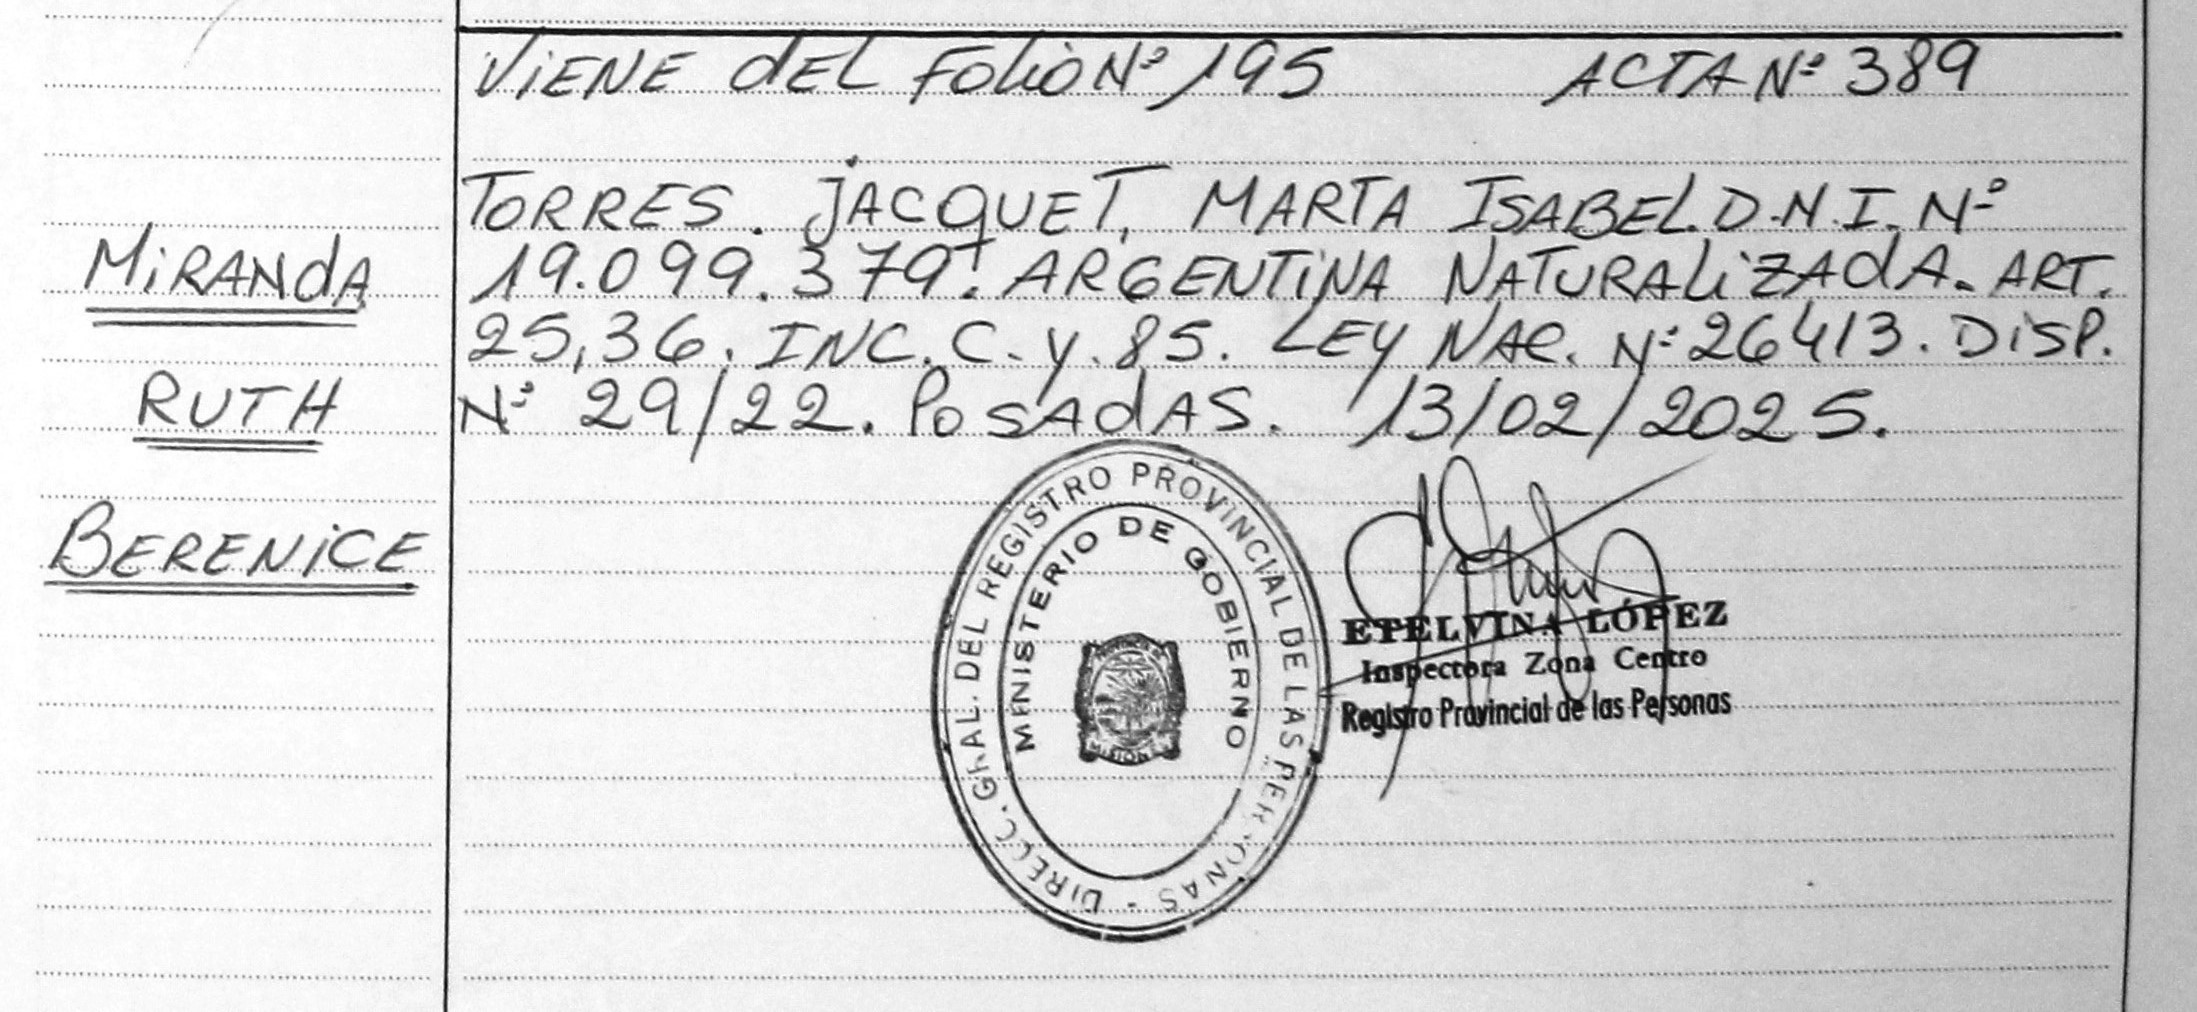 ViENE dEL FOLiO Nº 195 ACTA Nº 389
TORRES. JACQUET, MARTA ISABEL. D.N.I. Nº
19.099.379. ARGENTiNA NATURALiZAdA. ART.
25,36. INC. C. y. 85. LEY NAC. Nº 26413. DiSP.
Nº 29/22. POSADAS. 13/02/2025.
MiRANdA
RUTH
BERENiCE
DIRECC. GRAL. DEL REGISTRO PROVINCIAL DE LAS PERSONAS -
MINISTERIO DE GOBIERNO
ETELVINA LÓPEZ
Inspectora Zona Centro
Registro Provincial de las Personas